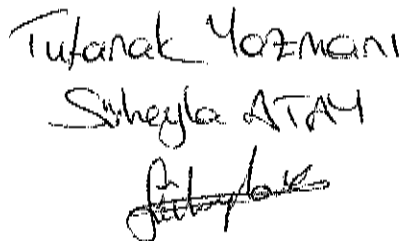 Tutanak Yazmanı
Süheyla ATAY